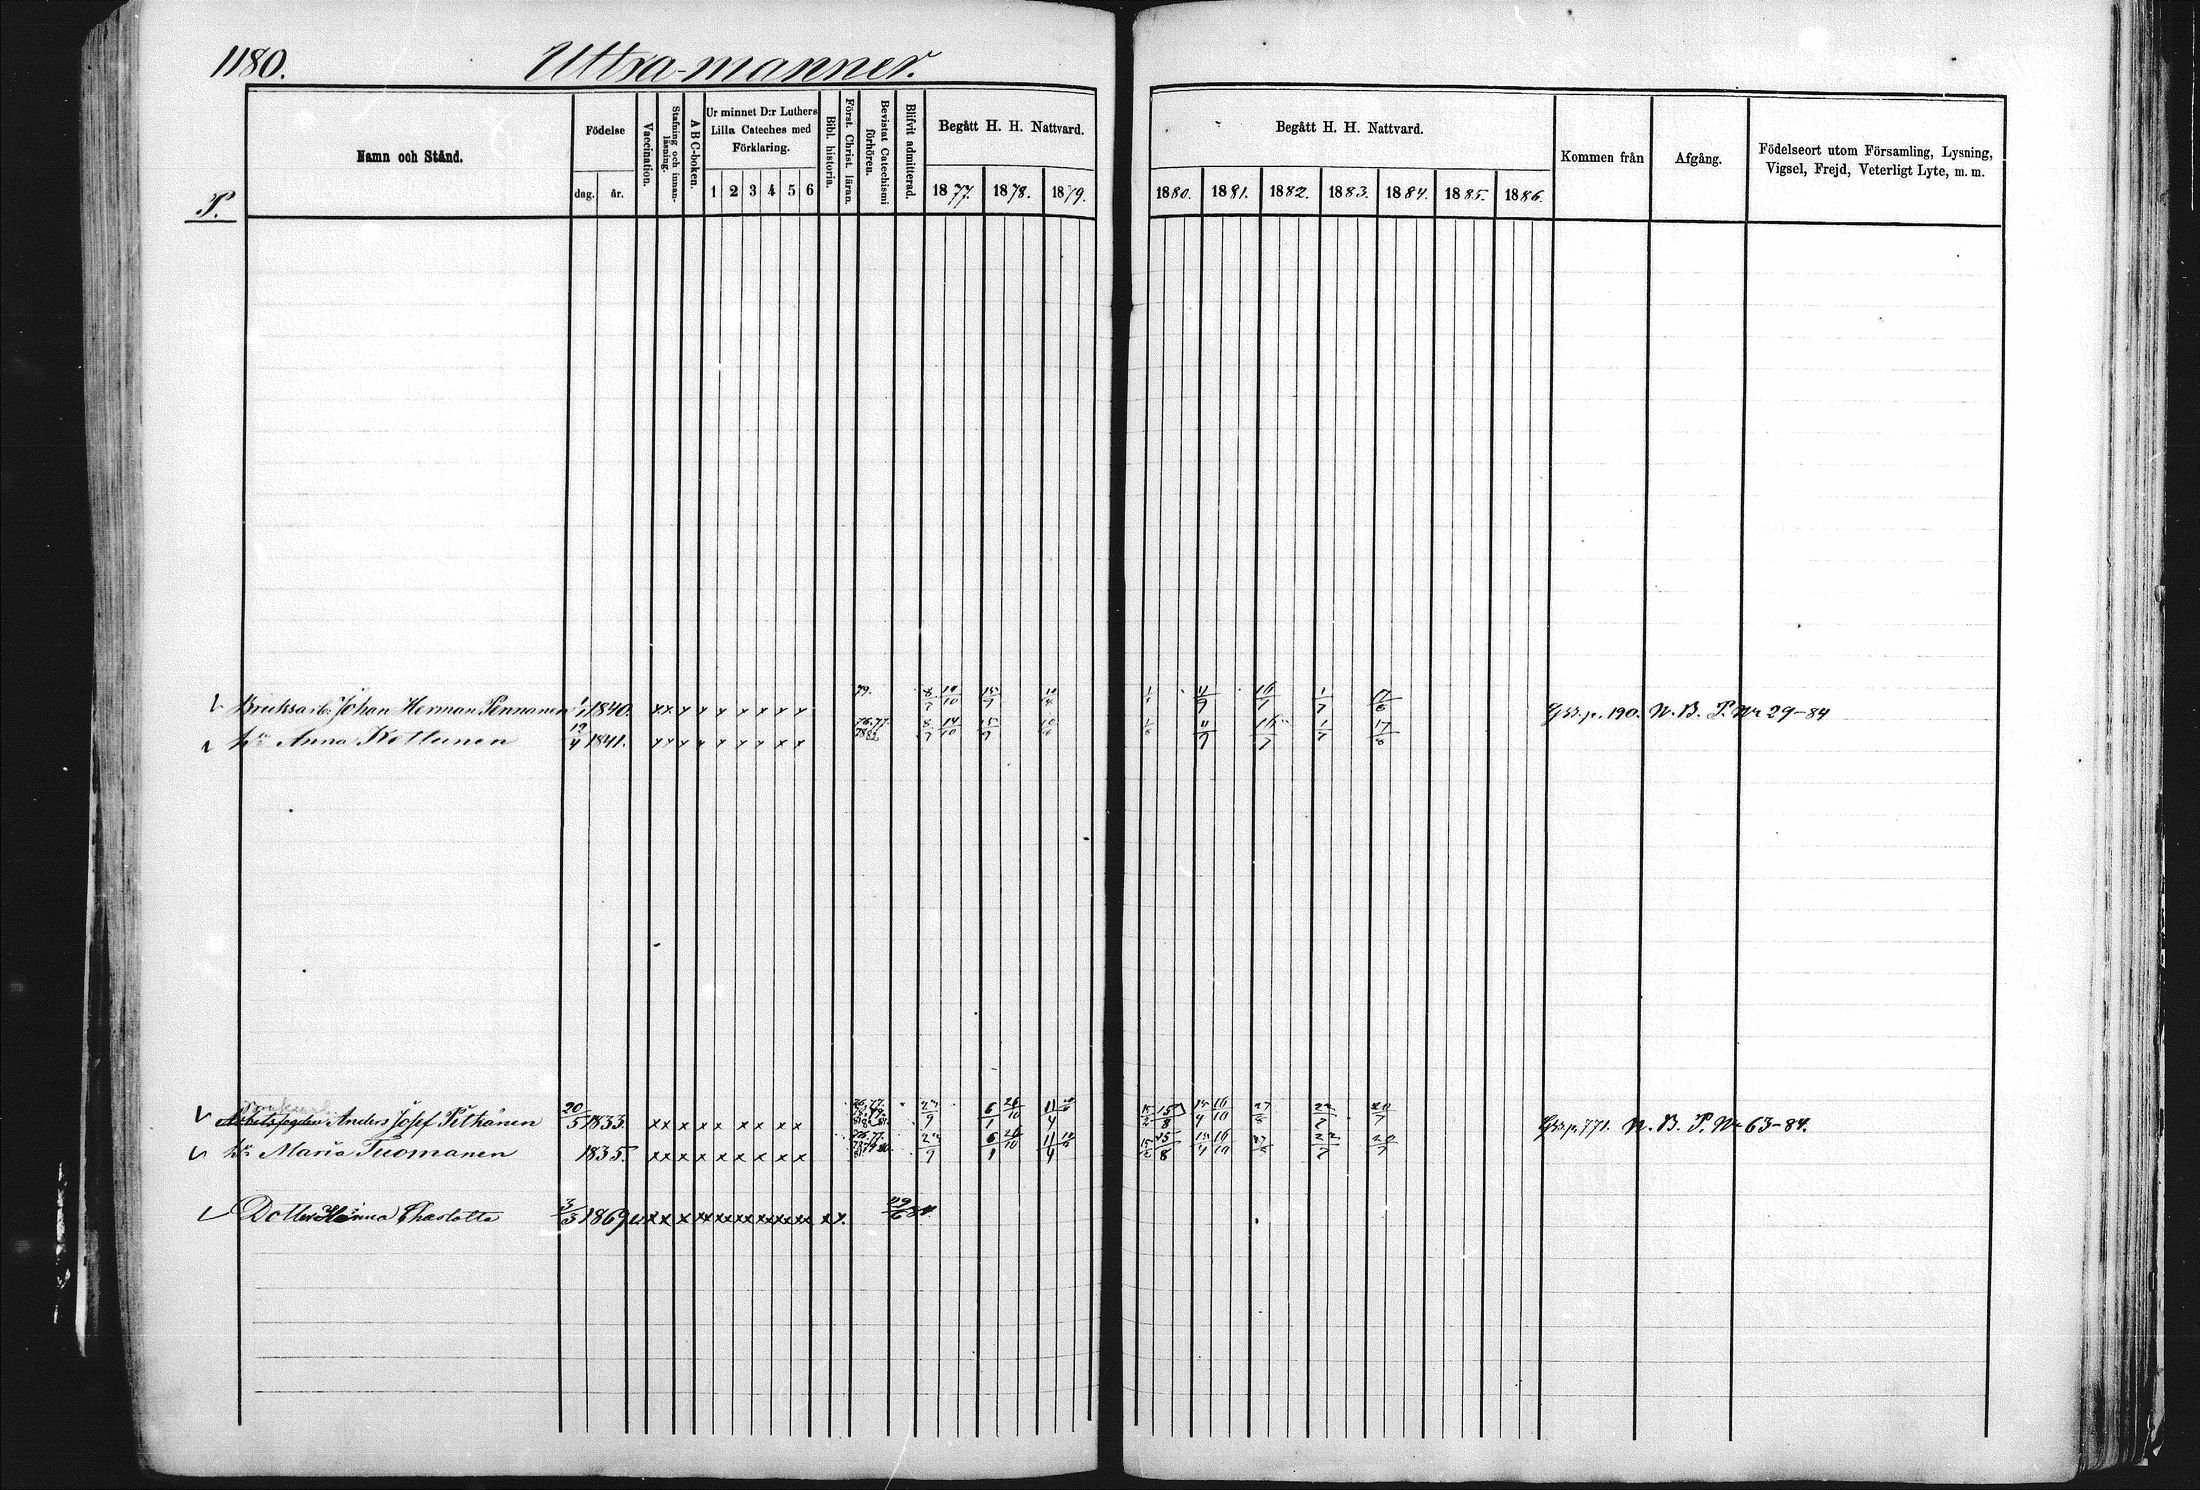 1180. Uttra-manner.
P.
Namn och Stånd.
Födelse
dag. år.
Vaccination.
Stafning och innanläsning.
A B C-boken.
Ur minnet D:r Luthers
Lilla Cateches med
Förklaring.
1 2 3 4 5 6
Bibl. historia.
Först. Christ. läran.
Bevistat Catechismi förhören.
Blifvit admitterad.
Begått H. H. Nattvard.
1877. 1878. 1879.
Begått H. H. Nattvard.
1880. 1881. 1882. 1883. 1884. 1885. 1886.
Kommen från
Afgång.
Födelseort utom Församling, Lysning,
Vigsel, Frejd, Veterligt Lyte, m. m.
Bruksarb. Johan Herman Pennanen 1/1 1840. x x x x x x x x x 79. 8/7 14/10 15/9 1/7 17/8 p. 190. N. B. P. Nr 29-84
hu Anna Kettunen 12/4 1841. x x x x x x x x x 76.77. 8/7 14/10 15/9 11/9 1/7 17/8
Arbetsfogden Anders Josef Pitkänen 20/5 1833. x x x x x x x x x 76.77. 23/9 6/1 26/10 11/4 15/8 16/10 p. 771. N. B. P. Nr 63-84.
hu Maria Tuomanen 1835. x x x x x x x x x 23/9 6/1 26/10 11/4 16/10
Dotter Hanna Charlotta 3/5 1869 v x x x xx xx xx xx xx xx x x. 29/6 84.